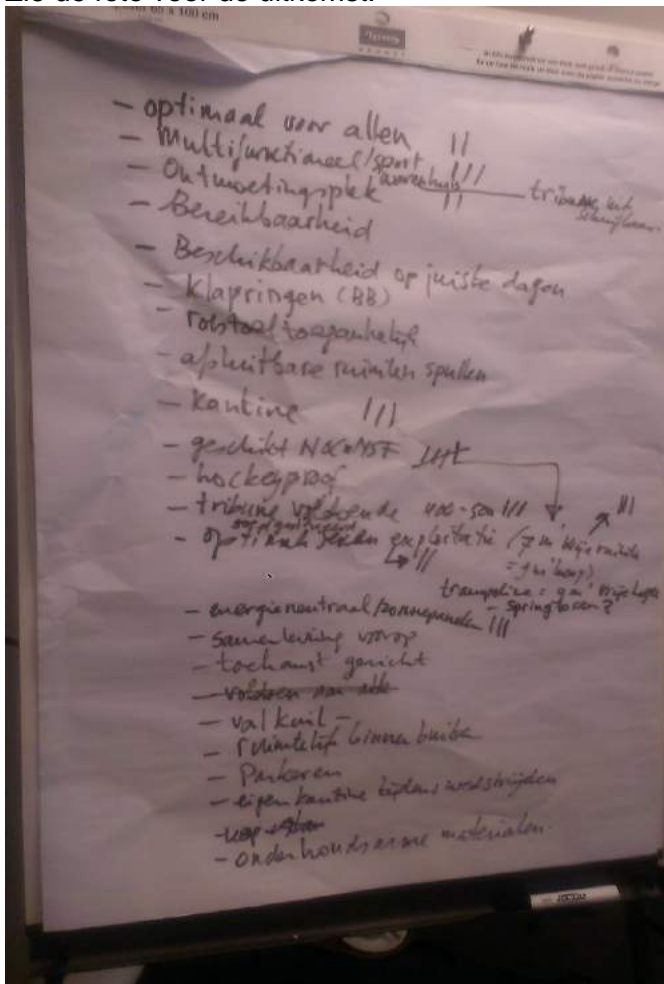 x 100 cm
- optimaal voor allen II
- Multifunctioneel/sport III
- Ontmoetingsplek II tribune
- Bereikbaarheid
- Beschikbaarheid op juiste dagen
- Klapringen (BB)
- rolstoeltoegankelijk
- afsluitbare ruimten spullen
- kantine III
- geschikt
- hockeyproof
- tribune voldoende 400-500 III III
- exploitatie (7 m' vrije
III
trampoline
- springtoren?
- energieneutraal/zonnepanelen III
- samenleving voorop
- toekomst gericht
- voldoen aan alle
- valkuil -
- ruimtelijk binnen buiten
- Parkeren
- eigen kantine tijdens wedstrijden
- onderhoudsarme materialen.